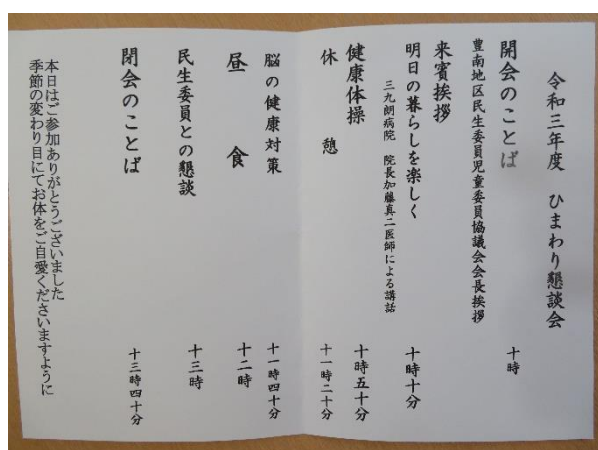 令和三年度　ひまわり懇談会
開会のことば　十時
豊南地区民生委員児童委員協議会会長挨拶
来賓挨拶
明日の暮らしを楽しく　十時十分
三九朗病院　院長加藤真二医師による講話
健康体操　十時五十分
休　憩　十一時二十分
脳の健康対策　十一時四十分
昼　食　十二時
民生委員との懇談　十三時
閉会のことば　十三時四十分
本日はご参加ありがとうございました
季節の変わり目にてお体をご自愛くださいますように